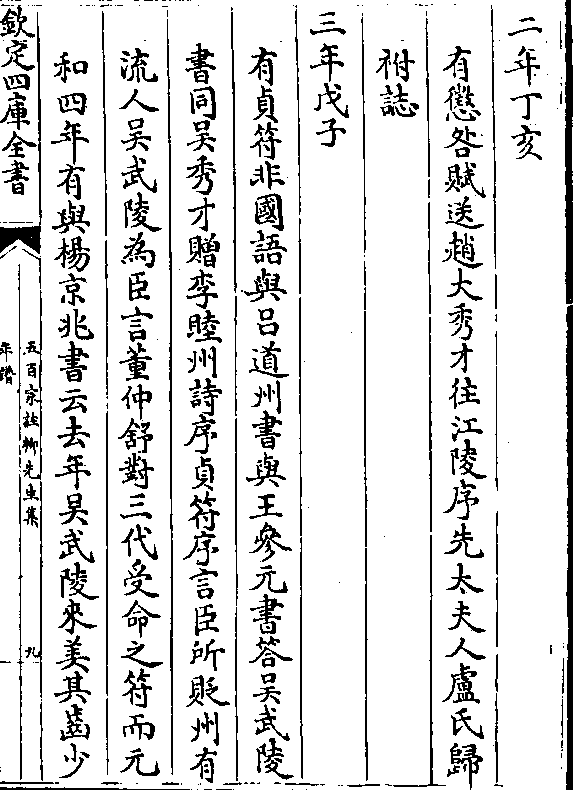 二年丁亥
有懲咎賦送趙大秀才往江陵序先太夫人盧氏歸
祔誌
三年戊子
有貞符非國語與吕道州書與王參元書答吴武陵
書同吴秀才贈李睦州詩序貞符序言臣所貶州有
流人吴武陵為臣言董仲舒對三代受命之符而元
和四年有與楊京兆書云去年吴武陵來美其齒少
欽定四庫全書
五百家註柳先生集
年譜
九